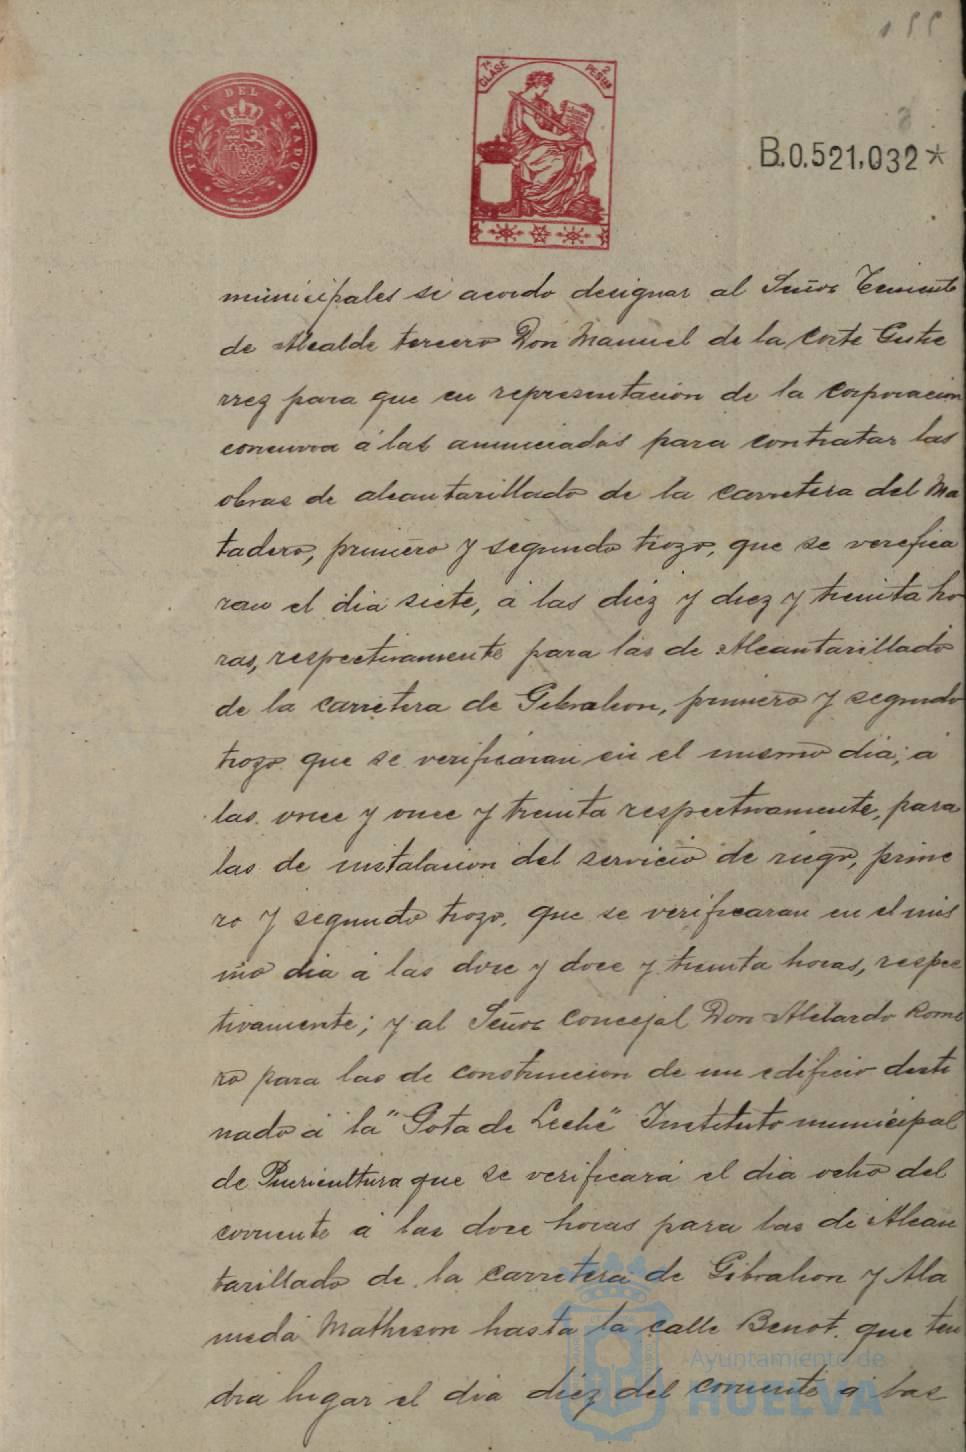 155
TIMBRE DEL ESTADO
7ª CLASE
2 PESETAS
B.0.521,032*
municipales se acordo designar al Señor Teniente
de Alcalde tercero Don Manuel de la Corte Gutie
rrez para que en representación de la Corporación
concurra á las anunciadas para contratar las
obras de alcantarillado de la carretera del Ma
tadero, primero y segundo trozo, que se verefica
ran el dia siete, á las diéz y diez y treinta ho
ras, respectivamente para las de Alcantarillado
de la carretera de Gibraleon, primero y segundo
trozo que se verificáran en el mismo dia, á
las once y once y treinta respectivamente, para
las de instalacion del servicio de riego, prime
ro y segundo trozo, que se verificaran en el mis
mo dia á las doce y doce y treinta horas, respec
tivamente; y al Señor Concejal Don Abelardo Rome
ro para las de construccion de un edificio desti
nado á la "Gota de Leche" Instituto municipal
de Puericultura que se verificará el dia ocho del
corriente á las doce horas para las de Alcan
tarillado de la carretera de Gibraleon y Ala
meda Matheson hasta la calle Benot, que ten
dra lugar el dia diez del corriente á las
Ayuntamiento de
HUELVA